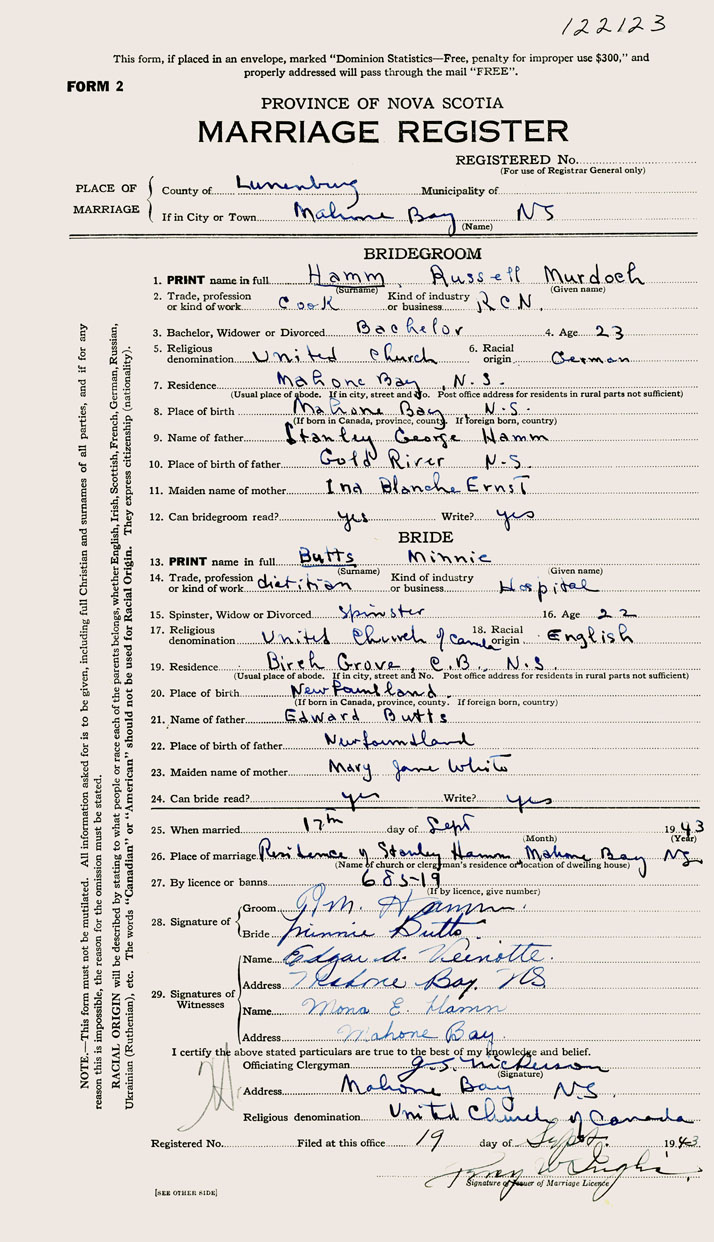 122123
This form, if placed in an envelope, marked "Dominion Statistics—Free, penalty for improper use $300," and
properly addressed will pass through the mail "FREE".
FORM 2
PROVINCE OF NOVA SCOTIA
MARRIAGE REGISTER
REGISTERED No.
(For use of Registrar General only)
PLACE OF MARRIAGE
County of Lunenburg Municipality of
If in City or Town Mahone Bay NS
(Name)
BRIDEGROOM
1. PRINT name in full Hamm, Russell Murdoch
(Surname) (Given name)
2. Trade, profession or kind of work Cook Kind of industry or business R.C.N.
3. Bachelor, Widower or Divorced Bachelor 4. Age 23
5. Religious denomination United Church 6. Racial origin German
7. Residence Mahone Bay, N.S.
(Usual place of abode. If in city, street and No. Post office address for residents in rural parts not sufficient)
8. Place of birth Mahone Bay N.S.
(If born in Canada, province, county. If foreign born, country)
9. Name of father Stanley George Hamm
10. Place of birth of father Gold River N.S.
11. Maiden name of mother Ina Blanche Ernst
12. Can bridegroom read? yes Write? yes
BRIDE
13. PRINT name in full Butts Minnie
(Surname) (Given name)
14. Trade, profession or kind of work dietitian Kind of industry or business Hospital
15. Spinster, Widow or Divorced Spinster 16. Age 22
17. Religious denomination United Church of Canada 18. Racial origin English
19. Residence Birch Grove, C.B., N.S.
(Usual place of abode. If in city, street and No. Post office address for residents in rural parts not sufficient)
20. Place of birth Newfoundland.
(If born in Canada, province, county. If foreign born, country)
21. Name of father Edward Butts
22. Place of birth of father Newfoundland
23. Maiden name of mother Mary Jane White
24. Can bride read? yes Write? yes
25. When married 17th day of Sept 1943
(Month) (Year)
26. Place of marriage Residence of Stanley Hamm Mahone Bay NS
(Name of church or clergyman's residence or location of dwelling house)
27. By licence or banns 685-19
(If by licence, give number)
28. Signature of
Groom R.M. Hamm.
Bride Minnie Butts
29. Signatures of Witnesses
Name Edgar A. Veinotte.
Address Mahone Bay, NS
Name Mona E. Hamm
Address Mahone Bay
I certify the above stated particulars are true to the best of my knowledge and belief.
Officiating Clergyman G.S. Nickerson
(Signature)
Address Mahone Bay N.S.
Religious denomination United Church of Canada
Registered No. Filed at this office 19 day of Sept. 1943
Signature of Issuer of Marriage Licence
[SEE OTHER SIDE]
NOTE.—This form must not be mutilated. All information asked for is to be given, including full Christian and surnames of all parties, and if for any
reason this is impossible, the reason for the omission must be stated.
RACIAL ORIGIN will be described by stating to what people or race each of the parents belongs, whether English, Irish, Scottish, French, German, Russian,
Ukrainian (Ruthenian), etc. The words "Canadian" or "American" should not be used for Racial Origin. They express citizenship (nationality).